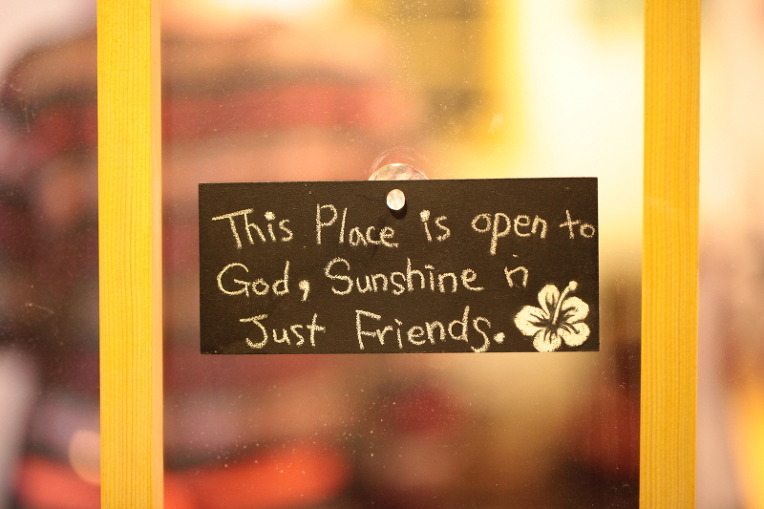 This Place is open to
God, Sunshine n
Just Friends.